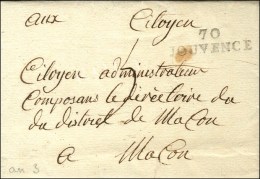 aux Citoyen
70
JOUVENCE
Citoyen administrateur
Composans le directoire du
du district de Macon
a Macon
an 3